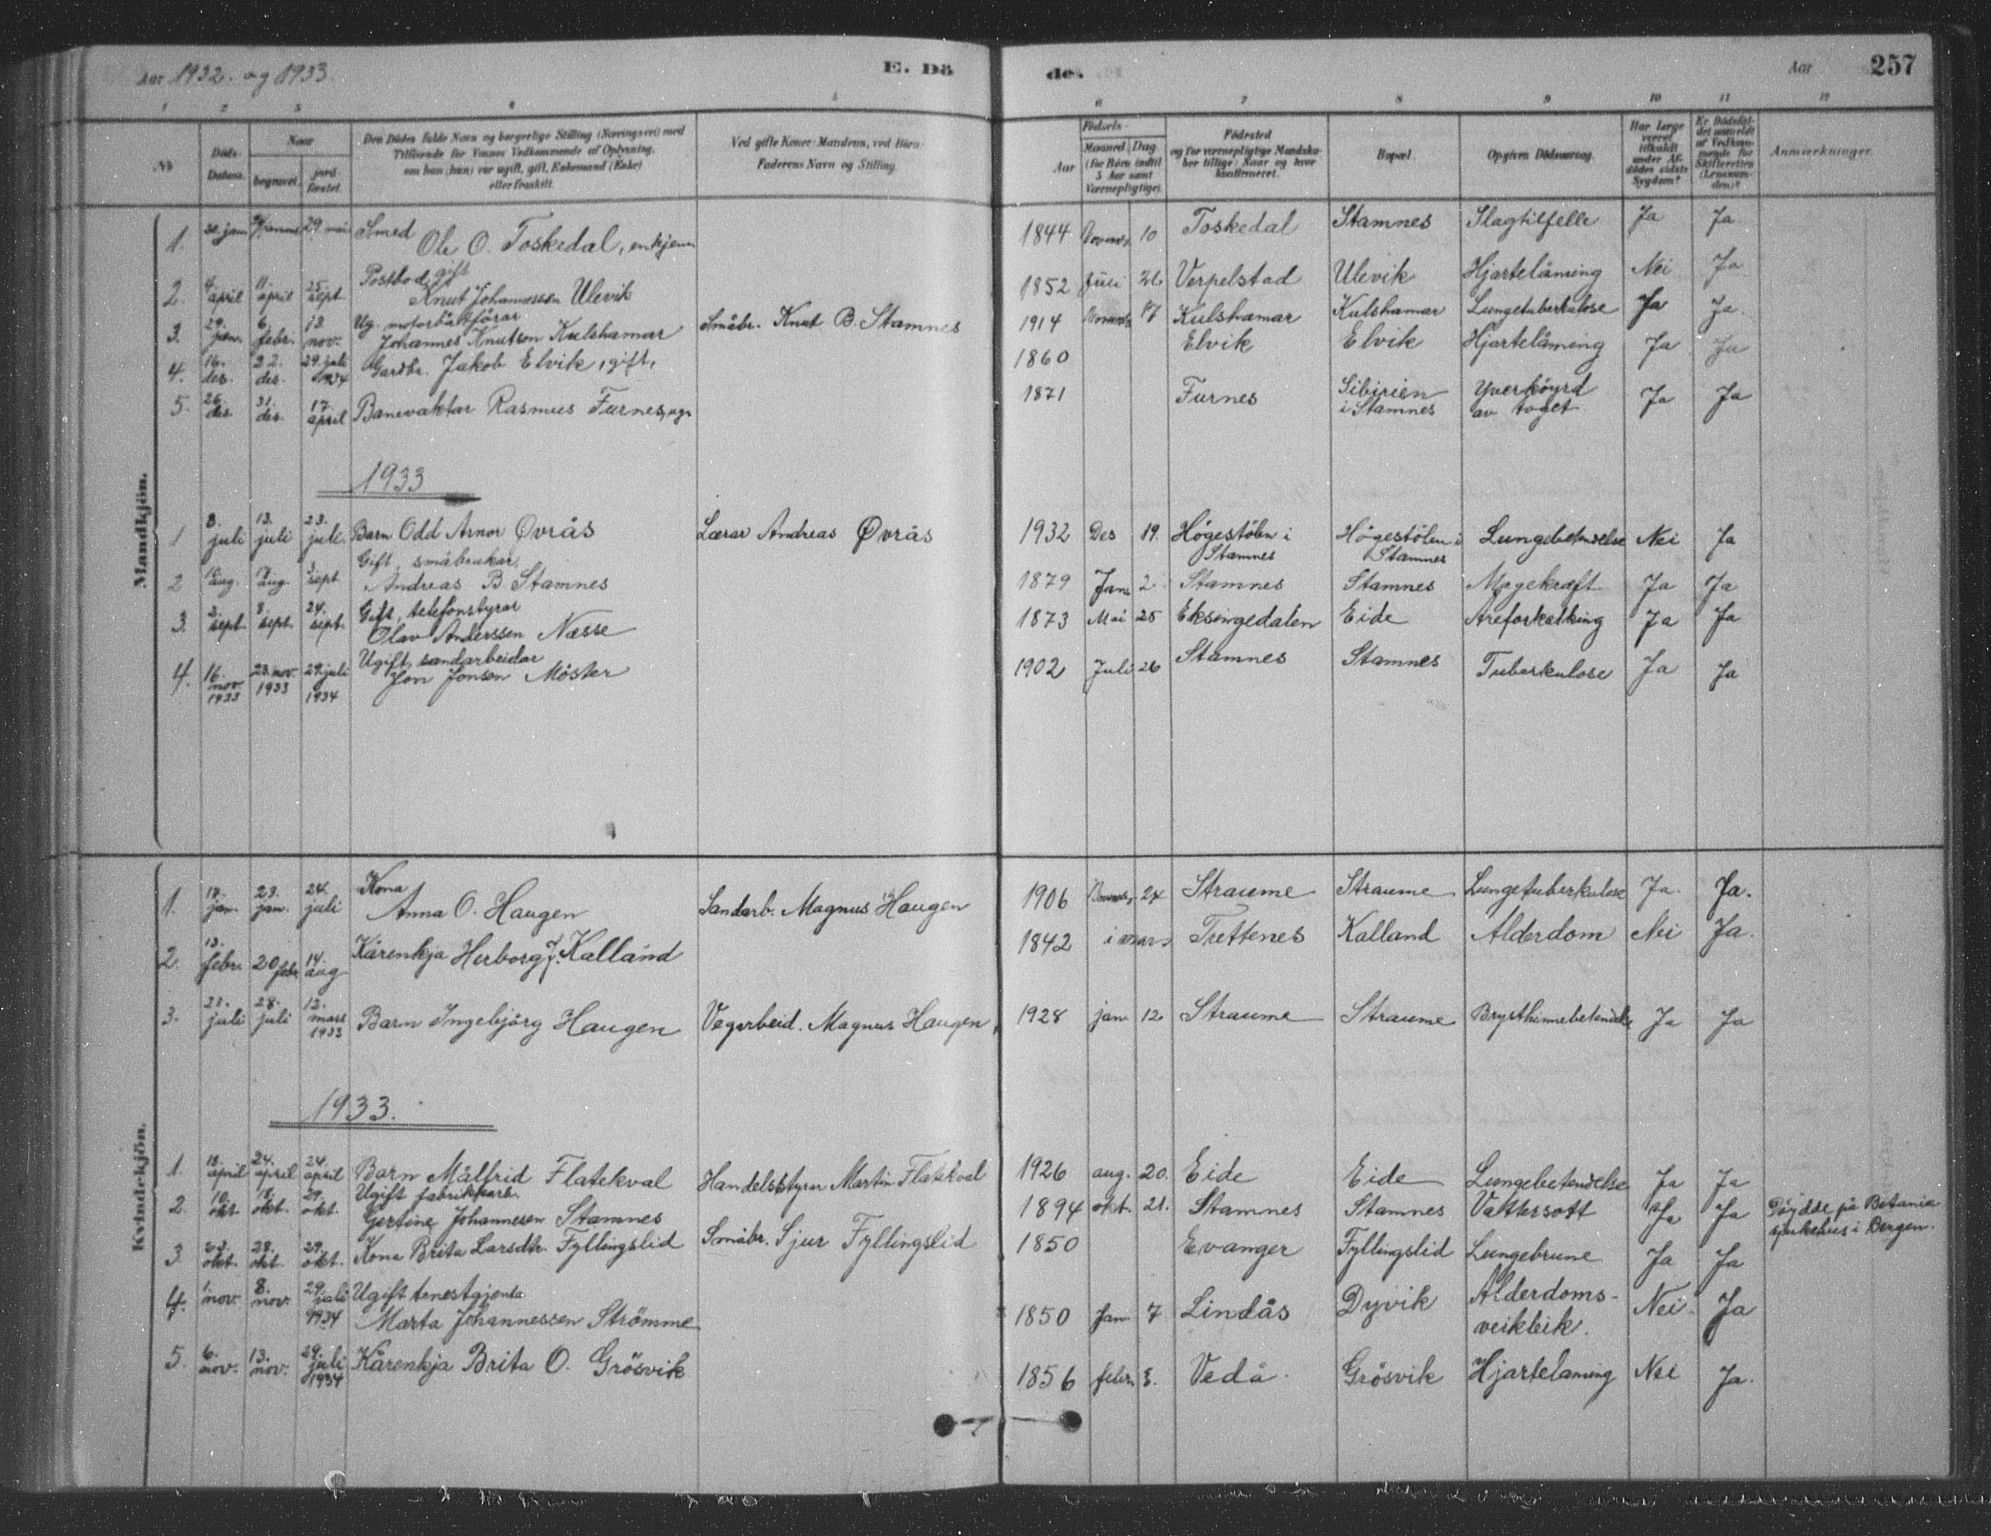 Aar 1932. og 1933.
E. Dö
de.
Aar
257
1 2 3 4 5 6 7 8 9 10 11 12
No
Döds-Datum.
Naar
begravet.
jord-fæstet.
Den Dödes fulde Navn og borgerlige Stilling (Næringsvei) med
Tilföiende for Voxnes Vedkommende af Oplysning,
om han (hun) var ugift, gift, Enkemand (Enke)
eller fraskilt.
Ved gifte Koner: Mandens, ved Börn:
Faderens Navn og Stilling.
Födsels-
Aar
Maaned Dag
(for Börn indtil
5 Aar samt
Værnepligtige).
Födested
og for værnepligtige Mandska-
ber tillige: Naar og hvor
konfirmeret.
Bopæl.
Opgiven Dödsaarsag.
Har Læge
været
tilkaldt
under Af-
dödes sidste
Sygdom?
Er Dödsfal-
det anmeldt
af Vedkom-
mende for
Skifteretten
(Lensman-
den)?
Anmærkninger.
Mandkjön.
1. 29 mai Smed Ole O. Toskedal, enkjem 1844 10 Toskedal Stamnes Slagtilfelle Ja Ja
2. 4. april 11. april 25. sept. Postbod, gift Knut Johannessen Ulevik 1852 Juli 26. Verpelstad Ulevik Hjartelåming Nei Ja
3. 29. jan. 6. febr. 13 nov. Ug. motorbåtförar Johannes Knutson Kulshamar Småbr. Knut B. Stamnes 1914 17 Kulshamar Kulshamar Lungetuberkulose Ja Ja.
4. 16. des. 22. des. 29. juli 1934 Gardbr. Jakob Elvik, gift, 1860 Elvik Elvik Hjartelåming Ja Ja
5. 26. des. 31. des. 17. april Banevaktar Rasmus Furnes, ug. 1871 Furnes Sibirien i Stamnes Yverköyrd av toget Ja Ja
1933
1 8. juli 13. juli 23. juli. Barn Odd Arnor Øvrås Lærar Andreas Øvrås 1932 Des 19. Högestölen i Stamnes Högestölen i Stamnes Lungebetendelse Nei Ja
2 aug. aug. sept Gift, småbrukar, Andreas B. Stamnes 1879 Jan. 2. Stamnes Stamnes Magekræft Ja Ja
3. 2. sept. 8. sept. 24. sept. Gift, telefonstyrar Olav Anderssen Næsse 1873 Mai 25 Eksingedalen Eide Åreforkalking Ja Ja
4. 16. nov. 1933 23. nov. 1933 29. juli 1934 Ugift, sandarbeidar Jon Jonsen Möster 1902 Juli 26 Stamnes Stamnes Tuberkulose Ja Ja
Kvindekjön.
1. 17. jan. 23. jan. 24. juli Kona Anna O. Haugen Sandarb. Magnus Haugen 1906 24 Straume Straume Lungetuberkulose Ja. Ja.
2. 13. febr. 20 febr 14. aug Kårenkja Herborg J. Kalland 1842 i mars Trettenes Kalland Alderdom Nei Ja.
3. juli 28. juli 12. mars 1933 Barn Ingebjörg Haugen Vegarbeid. Magnus Haugen, 1928 jan 12. Straume Straume Brysthinnebetendelse Ja Ja
1933.
1. 18. april 24. april 24. april Barn Målfrid Flatekval Handelsstyrar Martin Flatekval 1926 aug. 20. Eide Eide Lungebetendelse Ja Ja
2. 10. okt. 18. okt. 29. okt. Ugift fabrikkarb. Gertine Johannesen Stamnes 1894 okt. 21. Stamnes Stamnes Vattersott Ja Ja Döydde på Betania sjukehus i Bergen.
3. okt. 28. okt. 29. okt. Kona Brita Larsdtr. Fyllingslid Småbr. Sjur Fyllingslid 1850 Evanger Fyllingslid Lungebrune Ja Ja
4. 1. nov. 8. nov. 29. juli 1934 Ugift tenestgjenta Marta Johannessen Strömme 1850 Jan 7 Lindås Dyvik Alderdoms-veikleik. Nei. Ja
5. 6. nov. 13. nov. 29. juli 1934 Kårenkja Brita O. Grösvik 1856 febr. 3. Vedå. Grösvik Hjartelaming Nei Ja.